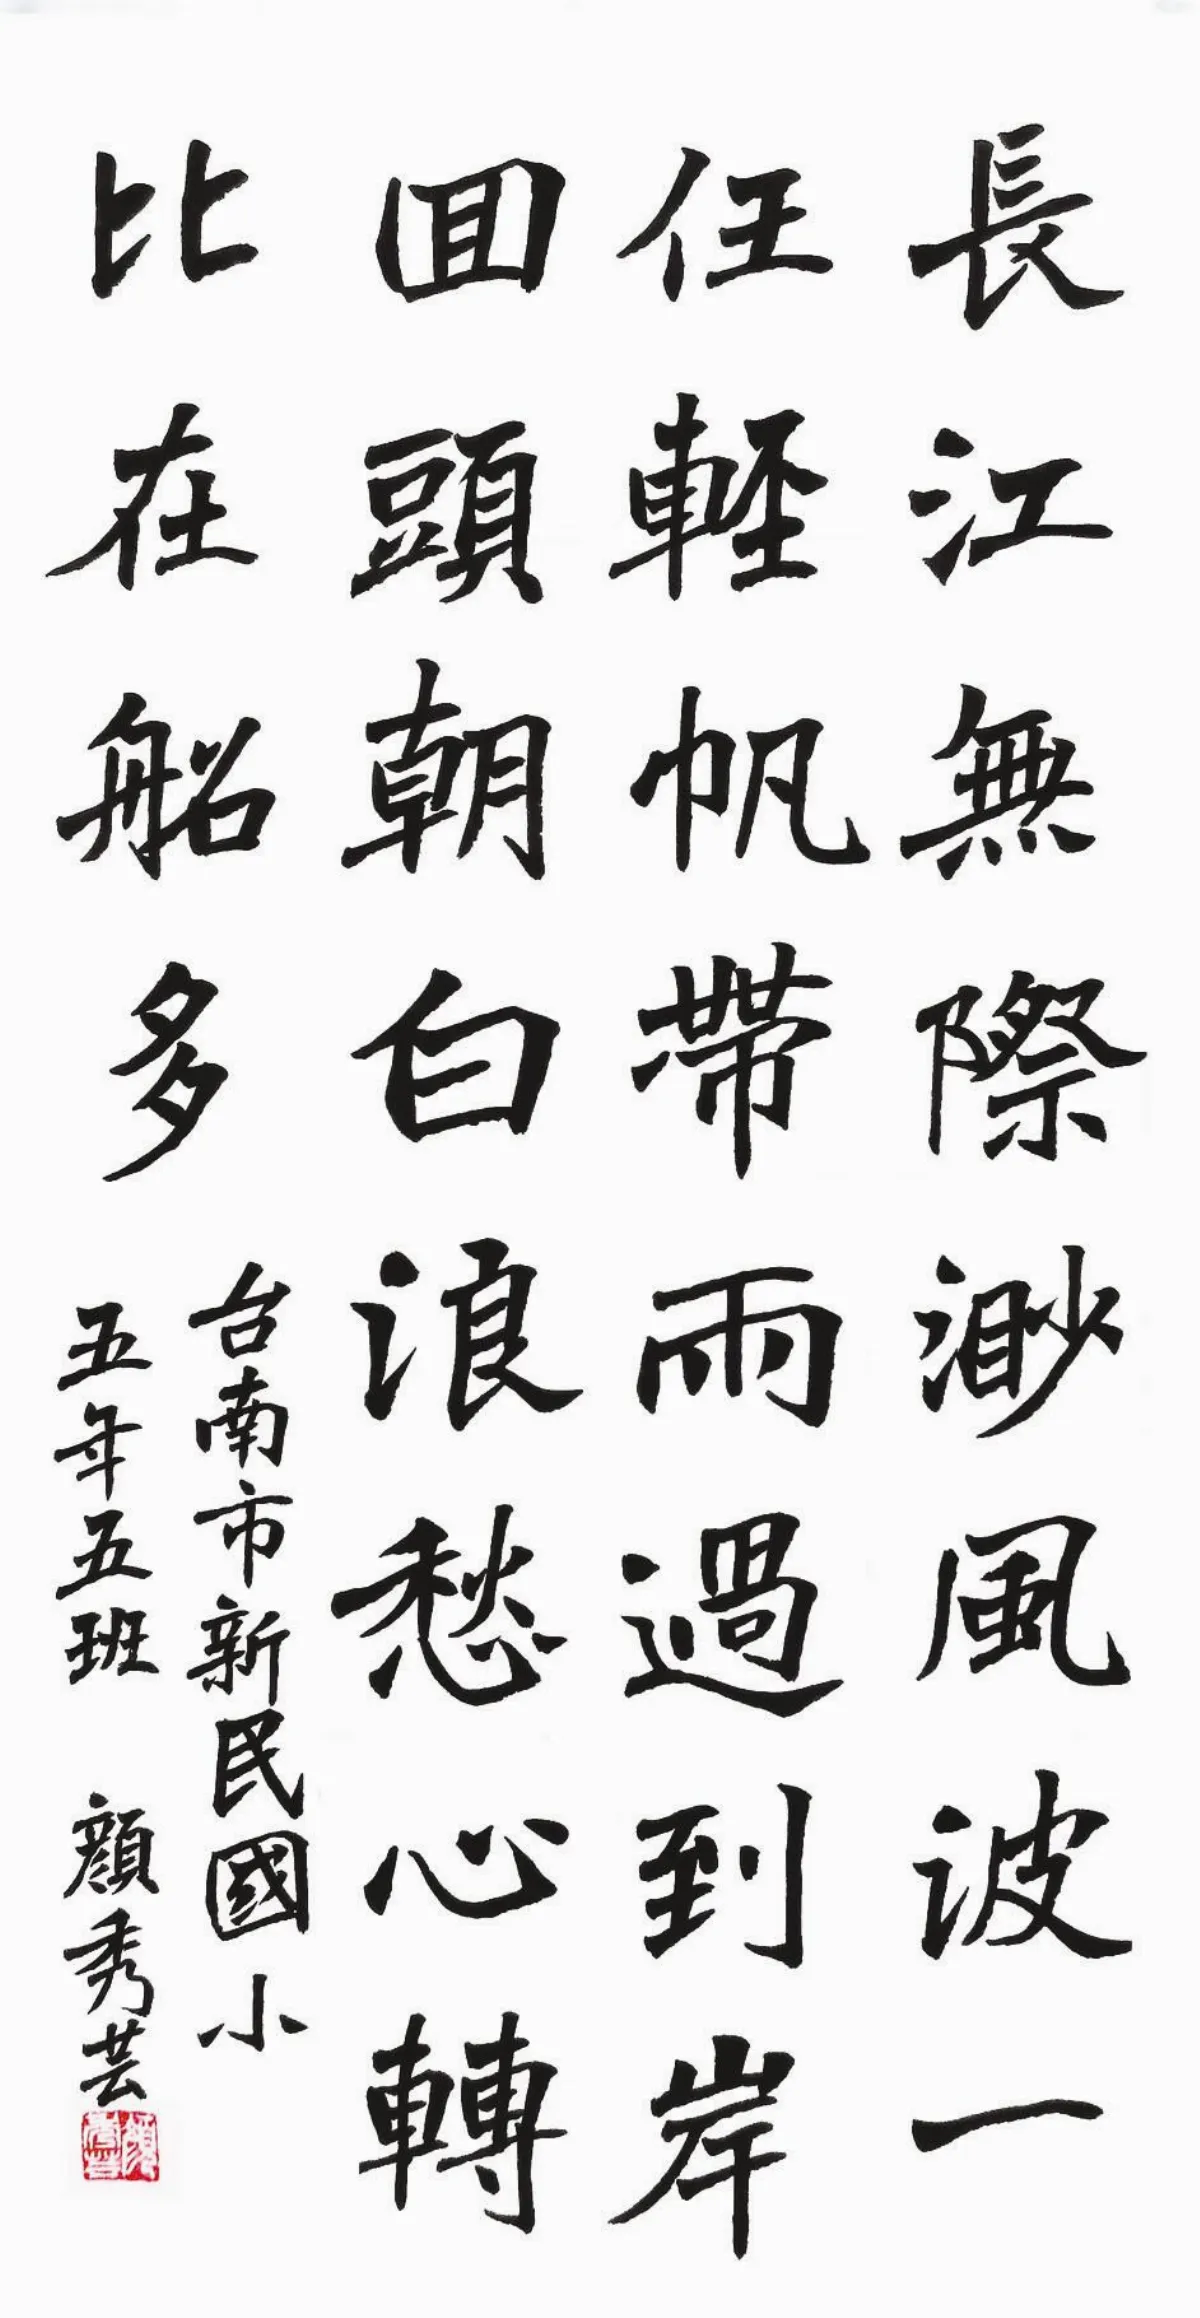 長江無際渺風波一
任輕帆帶雨過到岸
回頭朝白浪愁心轉
比在船多
台南市新民國小
五年五班 顏秀芸
顏秀芸